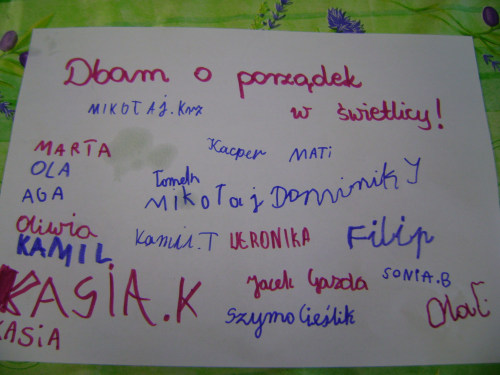 Dbam o porządek
w świetlicy!
MIKOŁAJ.Krz
MARTA
Kacper
MATI
OLA
AGA
Tomek
MIKOŁaj Dominik Y
Oliwia
KAMIL
Kamil.T
WERONIKA
Filip
KASIA.K
Jacek Gazda
SONIA.B
Szymo Cieślik
Ola
KASIA